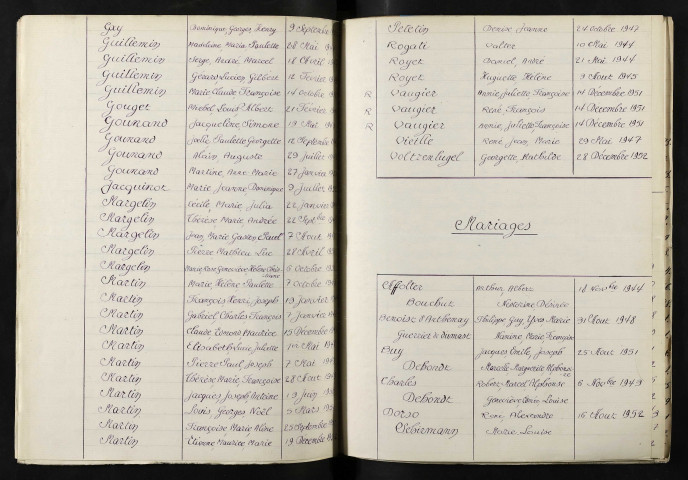 Gay Dominique, Georges, Henry 9 Septembre
Guillemin Madeleine, Maria Paulette 28 Mai
Guillemin Serge, André, Marcel 18 Avril
Guillemin Gérard Lucien Gilbert 12 Février
Guillemin Marie Claude Françoise 14 Octobre
Gouget Michel Louis Albert 21 Février
Gounand Jacqueline Simone 19 Mai
Gounand Joelle Paulette Georgette 12 Septembre
Gounand Alain, Auguste 29 Juillet
Gounand Martine Anne Marie 27 Janvier
Jacquinot Marie Jeanne Dominique 9 Juillet
Margelin Cécile, Marie, Julia 22 Janvier
Margelin Thérèse, Marie, Andrée 22 Septbre
Margelin Jean, Marie Gaston Paul 7 Août
Margelin Pierre Mathieu Luc 28 Avril
Margelin Marie, Rose Geneviève Hélène 6 Octobre
Martin Marie, Hélène Paulette 7 Octobre
Martin François Henri, Joseph 19 Janvier
Martin Gabriel Charles François 7 Janvier
Martin Claude Edmond Maurice 15 Décembre
Martin Elisabeth Lucie Juliette 1er Mai
Martin Pierre Paul, Joseph 7 Mai
Martin Thérèse Marie, Françoise 28 Août
Martin Jacques Joseph Antoine 19 Juin
Martin Louis Georges Noël 5 Mars
Martin Françoise Marie Aline 25 Septembre
Martin Etienne, Maurice, Marie 19 Décembre
Petetin Denise Jeanne 24 Octobre 1947
Rogati Valter 10 Mai 1944
Royet Daniel, André 21 Mai 1944
Royet Huguette Hélène 9 Août 1945
R Vaugier Annie, Juliette Françoise 14 Décembre 1951
R Vaugier René, François 14 Décembre 1951
R Vaugier Annie, Juliette Françoise 14 Décembre 1951
Vieille René Jean, Marie 29 Mai 1947
Voltzenlugel Georgette Mathilde 28 Décembre 1952
Mariages
Affolter Arthur, Albert 18 Novbre 1944
Bouchut Désirée
Benoist d'Anthenay Philippe, Guy, Yves, Marie 31 Août 1948
Guerrier de Dumast Janine, Marie, Françoise
Buy Jacques Emile, Joseph 25 Août 1951
Debondt Marcelle Marguerite
Charles Robert Marcel Alphonse 6 Novbre 1949
Debondt Geneviève Louise
Dorso René, Alexandre 16 Août 1952
Marie Louise